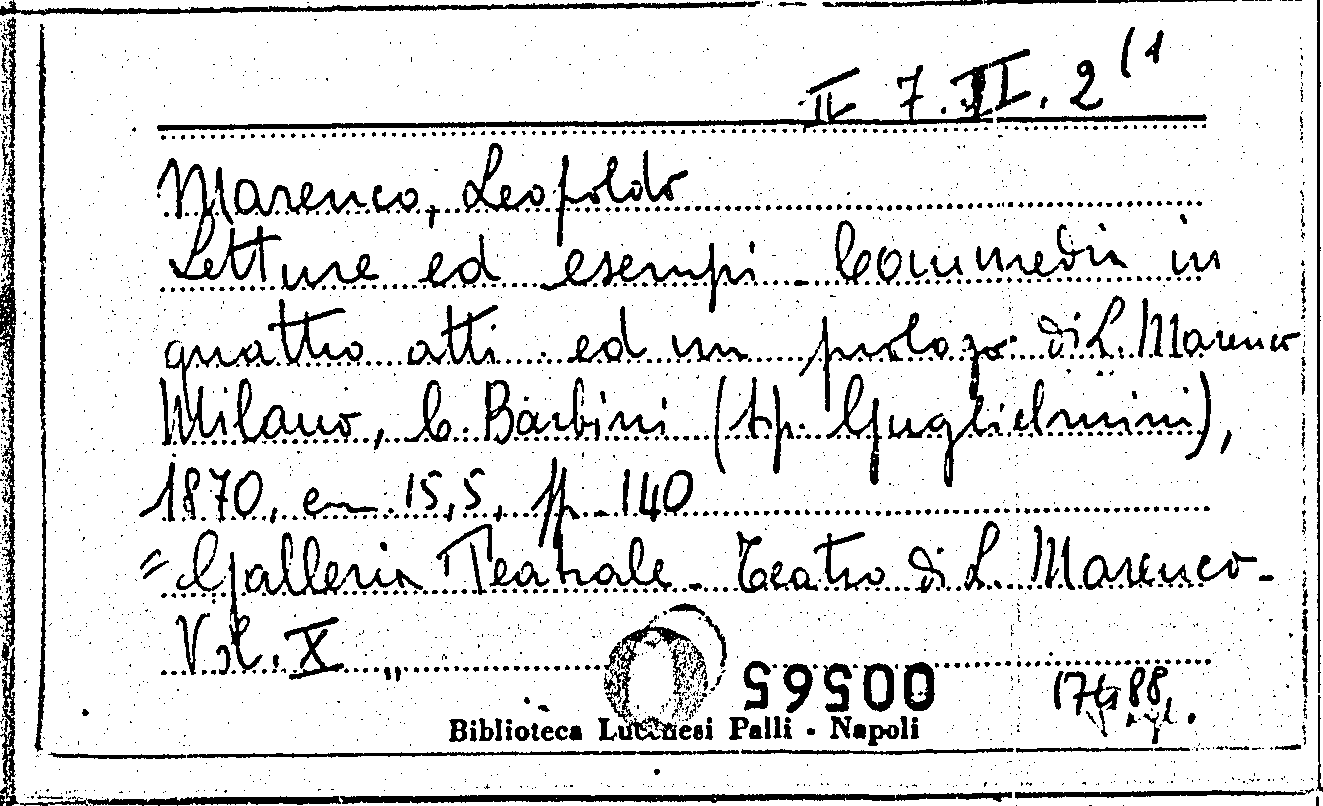 II 7. VI. 2 (1
Marenco, Leopoldo
Letture ed esempi - Commedia in
quattro atti ed un prologo di L. Marenco
Milano, C. Barbini (tip. Guglielmini),
1870, cm 15,5, pp. 140
= Galleria Teatrale - Teatro di L. Marenco -
Vol. X "
59500
Biblioteca Lucchesi Palli - Napoli